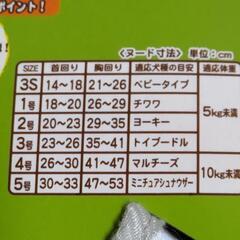 ポイント！
〈ヌード寸法〉単位：cm
SIZE 首回り 胸回り 適応犬種の目安 適応体重
3S 14〜18 21〜26 ベビータイプ 5kg未満
1号 18〜20 26〜29 チワワ
2号 20〜23 29〜35 ヨーキー
3号 23〜26 35〜41 トイプードル
4号 26〜30 41〜47 マルチーズ 10kg未満
5号 30〜33 47〜53 ミニチュアシュナウザー